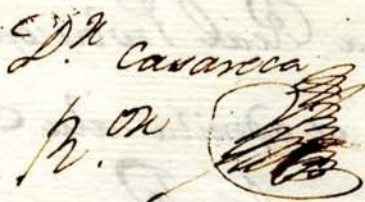 D.n Casareca
R.on